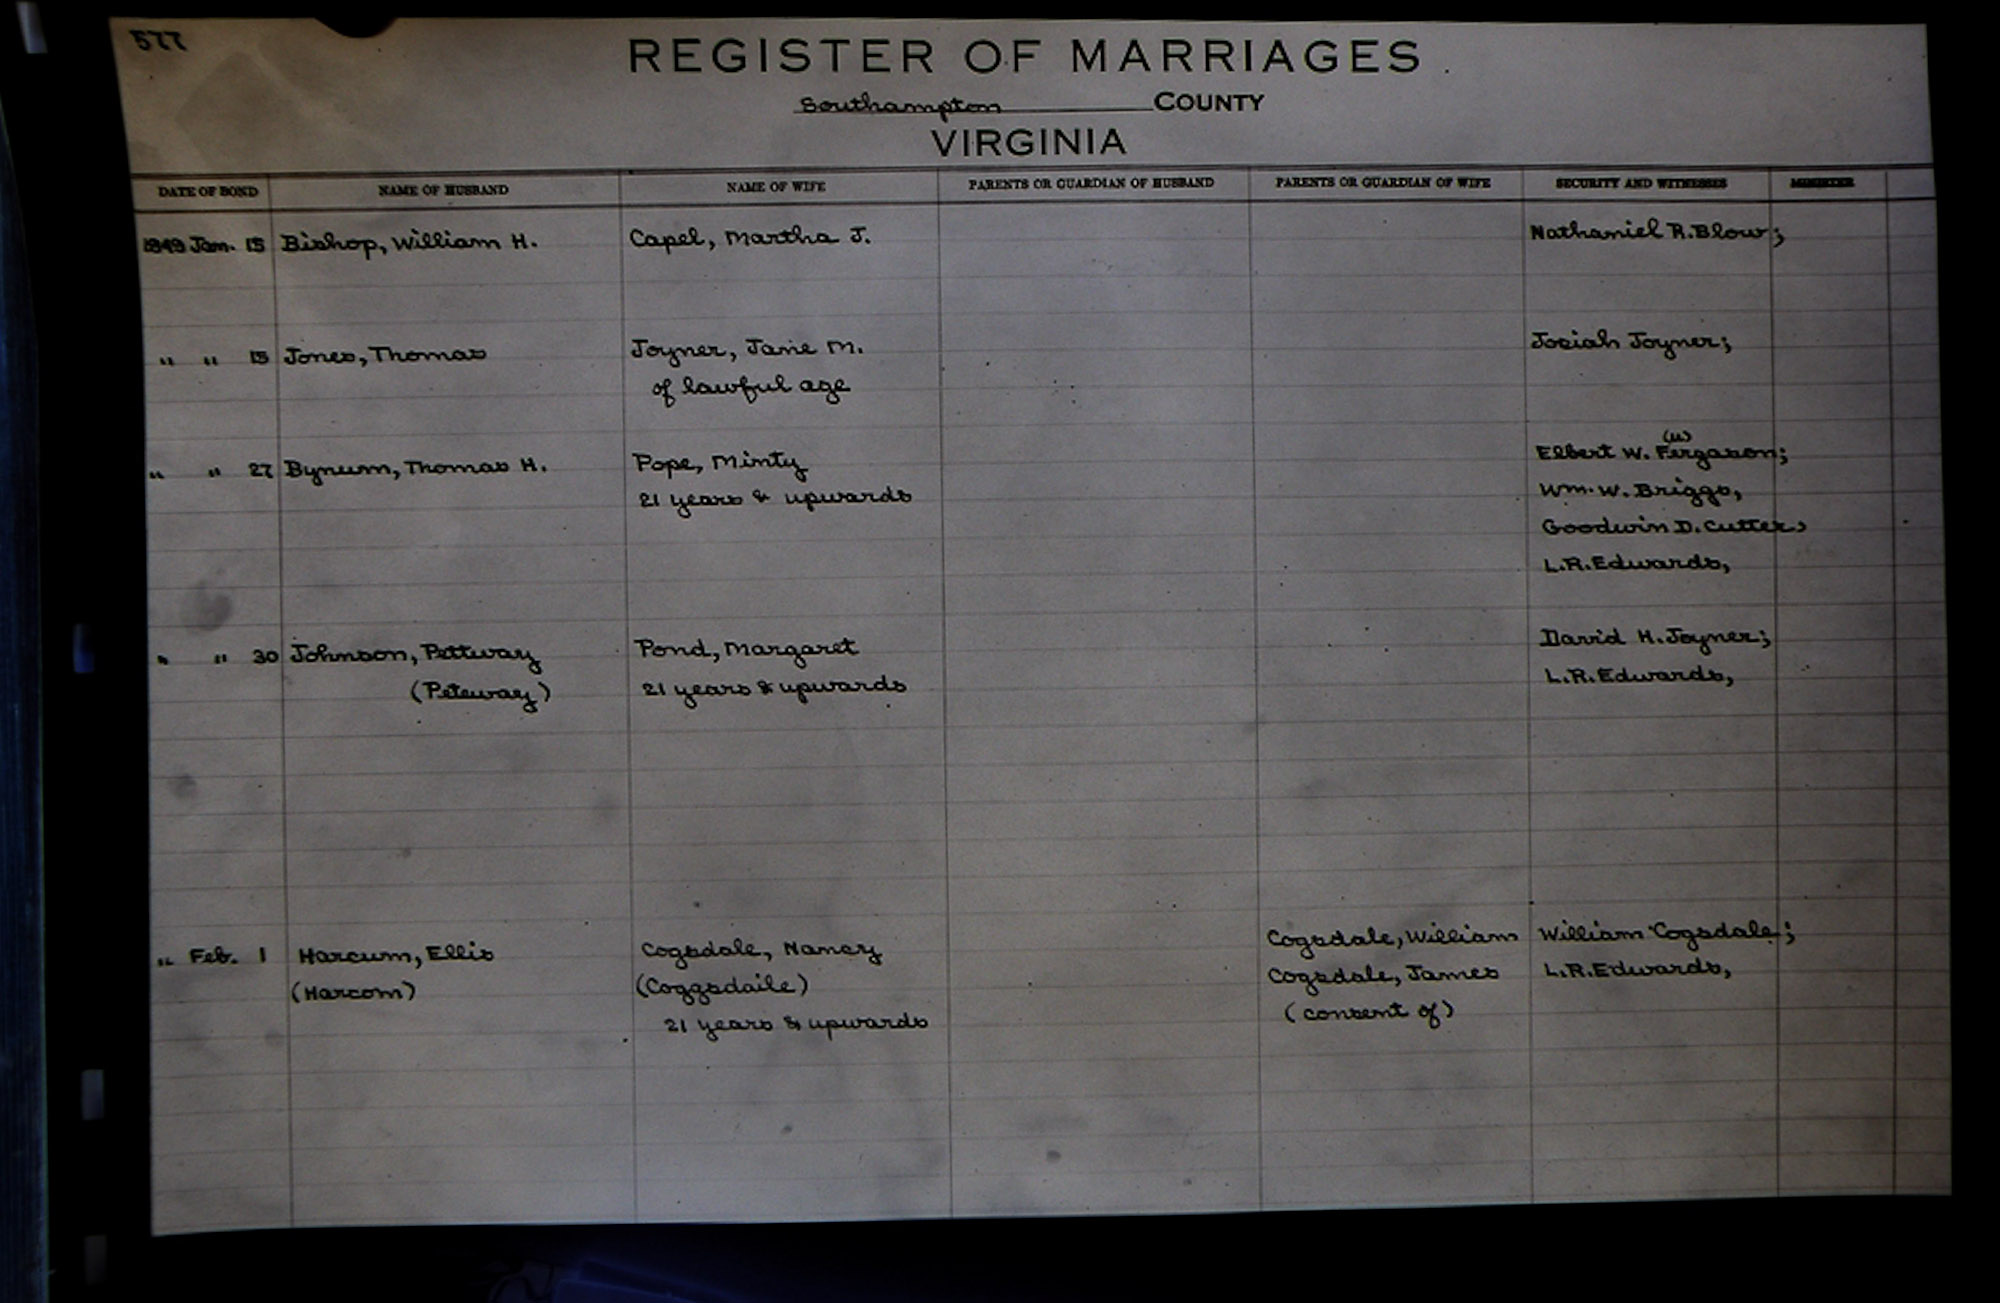 577
REGISTER OF MARRIAGES
Southampton COUNTY
VIRGINIA
DATE OF BOND NAME OF HUSBAND NAME OF WIFE PARENTS OR GUARDIAN OF HUSBAND PARENTS OR GUARDIAN OF WIFE SECURITY AND WITNESSES MINISTER
1849 Jan. 15 Bishop, William H. Capel, Martha J. Nathaniel R. Blow;
" " 15 Jones, Thomas Joyner, Jane M. Josiah Joyner;
of lawful age
(u)
" " 27 Bynum, Thomas H. Pope, Minty Elbert W. Fergason;
21 years & upwards Wm. W. Briggs,
Goodwin D. Cutter,
L.R. Edwards,
" " 30 Johnson, Pettway Pond, Margaret David H. Joyner;
(Peteway) 21 years & upwards L.R. Edwards,
" Feb. 1 Harcum, Ellis Cogsdale, Nancy Cogsdale, William William Cogsdale;
(Harcom) (Coggsdaile) Cogsdale, James L.R. Edwards,
21 years & upwards (consent of)